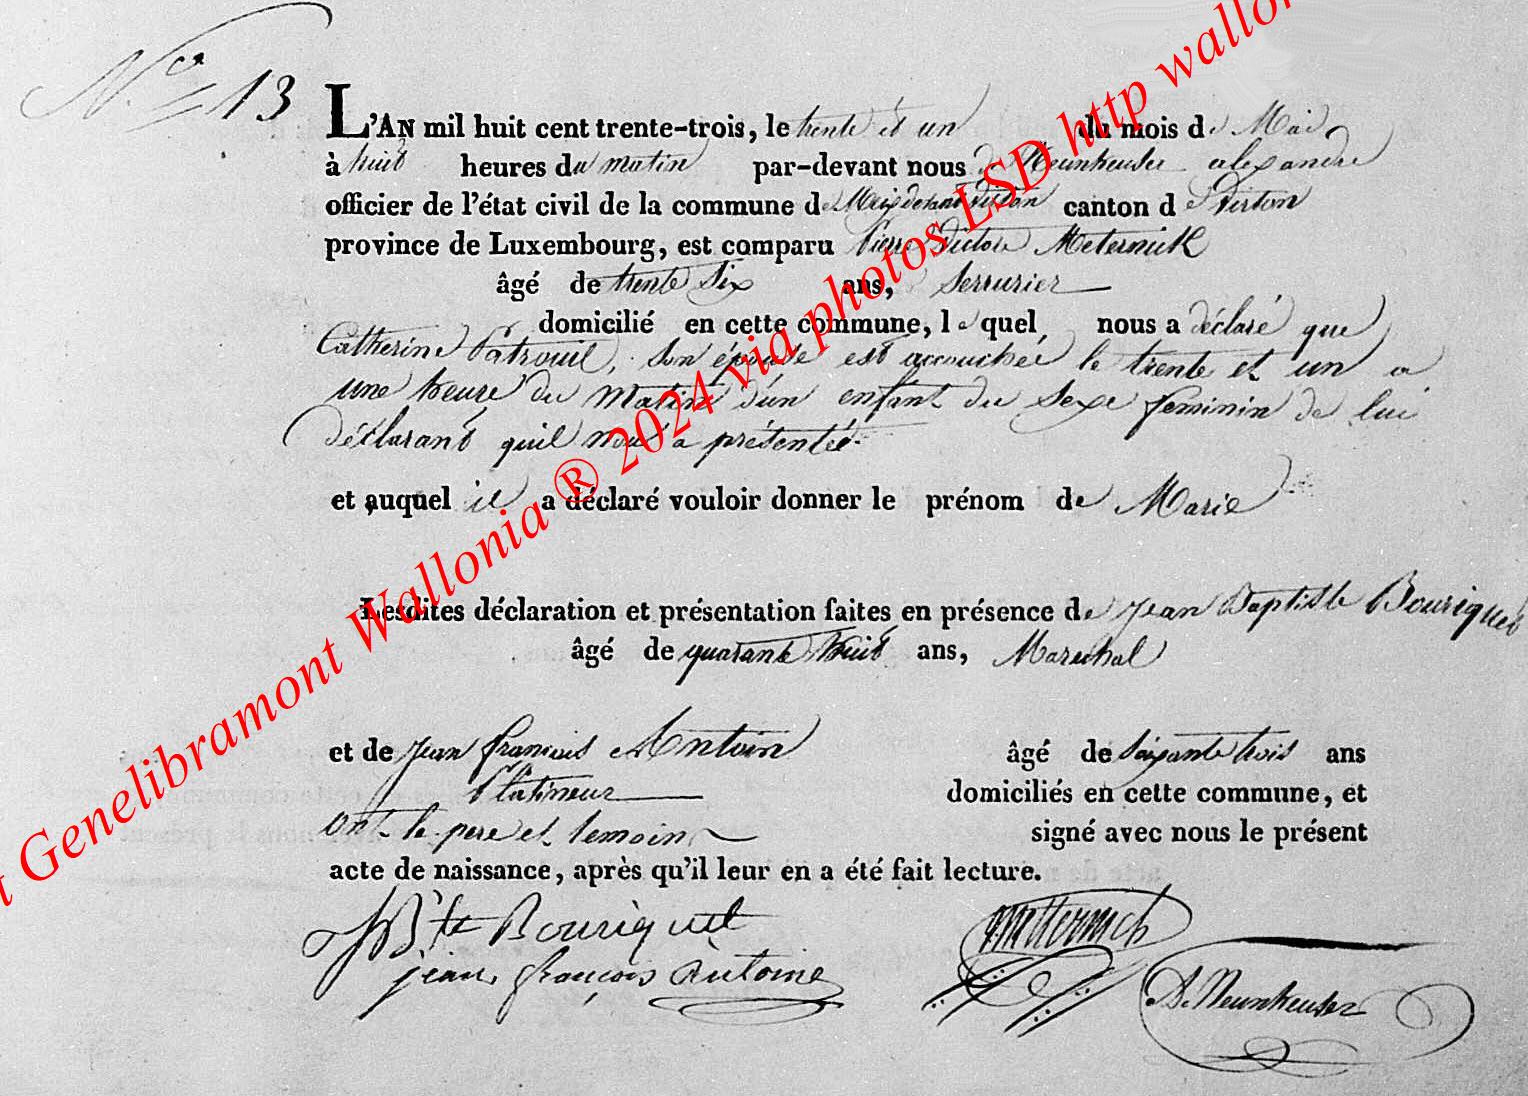 N.o 13
L'AN mil huit cent trente-trois, le trente et un du mois de Mai
à huit heures du matin par-devant nous de Neunheuser alexandre
officier de l'état civil de la commune de Meix devant Virton canton d e Virton
province de Luxembourg, est comparu Pierre Victor Meternick
âgé de trente Six ans, Serrurier
domicilié en cette commune, le quel nous a déclaré que
Catherine Patrouil, son épouse est accouchée le trente et un a
une heure du Matin d'un enfant du Sexe feminin de lui
déclarant quil nous a présentée
et auquel il a déclaré vouloir donner le prénom de Marie
Lesdites déclaration et présentation faites en présence de Jean Baptiste Bouriquet
âgé de quarante huit ans, Marechal
et de Jean francois Antoin âgé de soixante trois ans
Platineur domiciliés en cette commune, et
ont le pere et temoin signé avec nous le présent
acte de naissance, après qu'il leur en a été fait lecture.
JBte Bouriquet Metternich
jean françois Antoine A. Neunheuser
t Genelibramont Wallonia ® 2024 via photos LSD http wallon